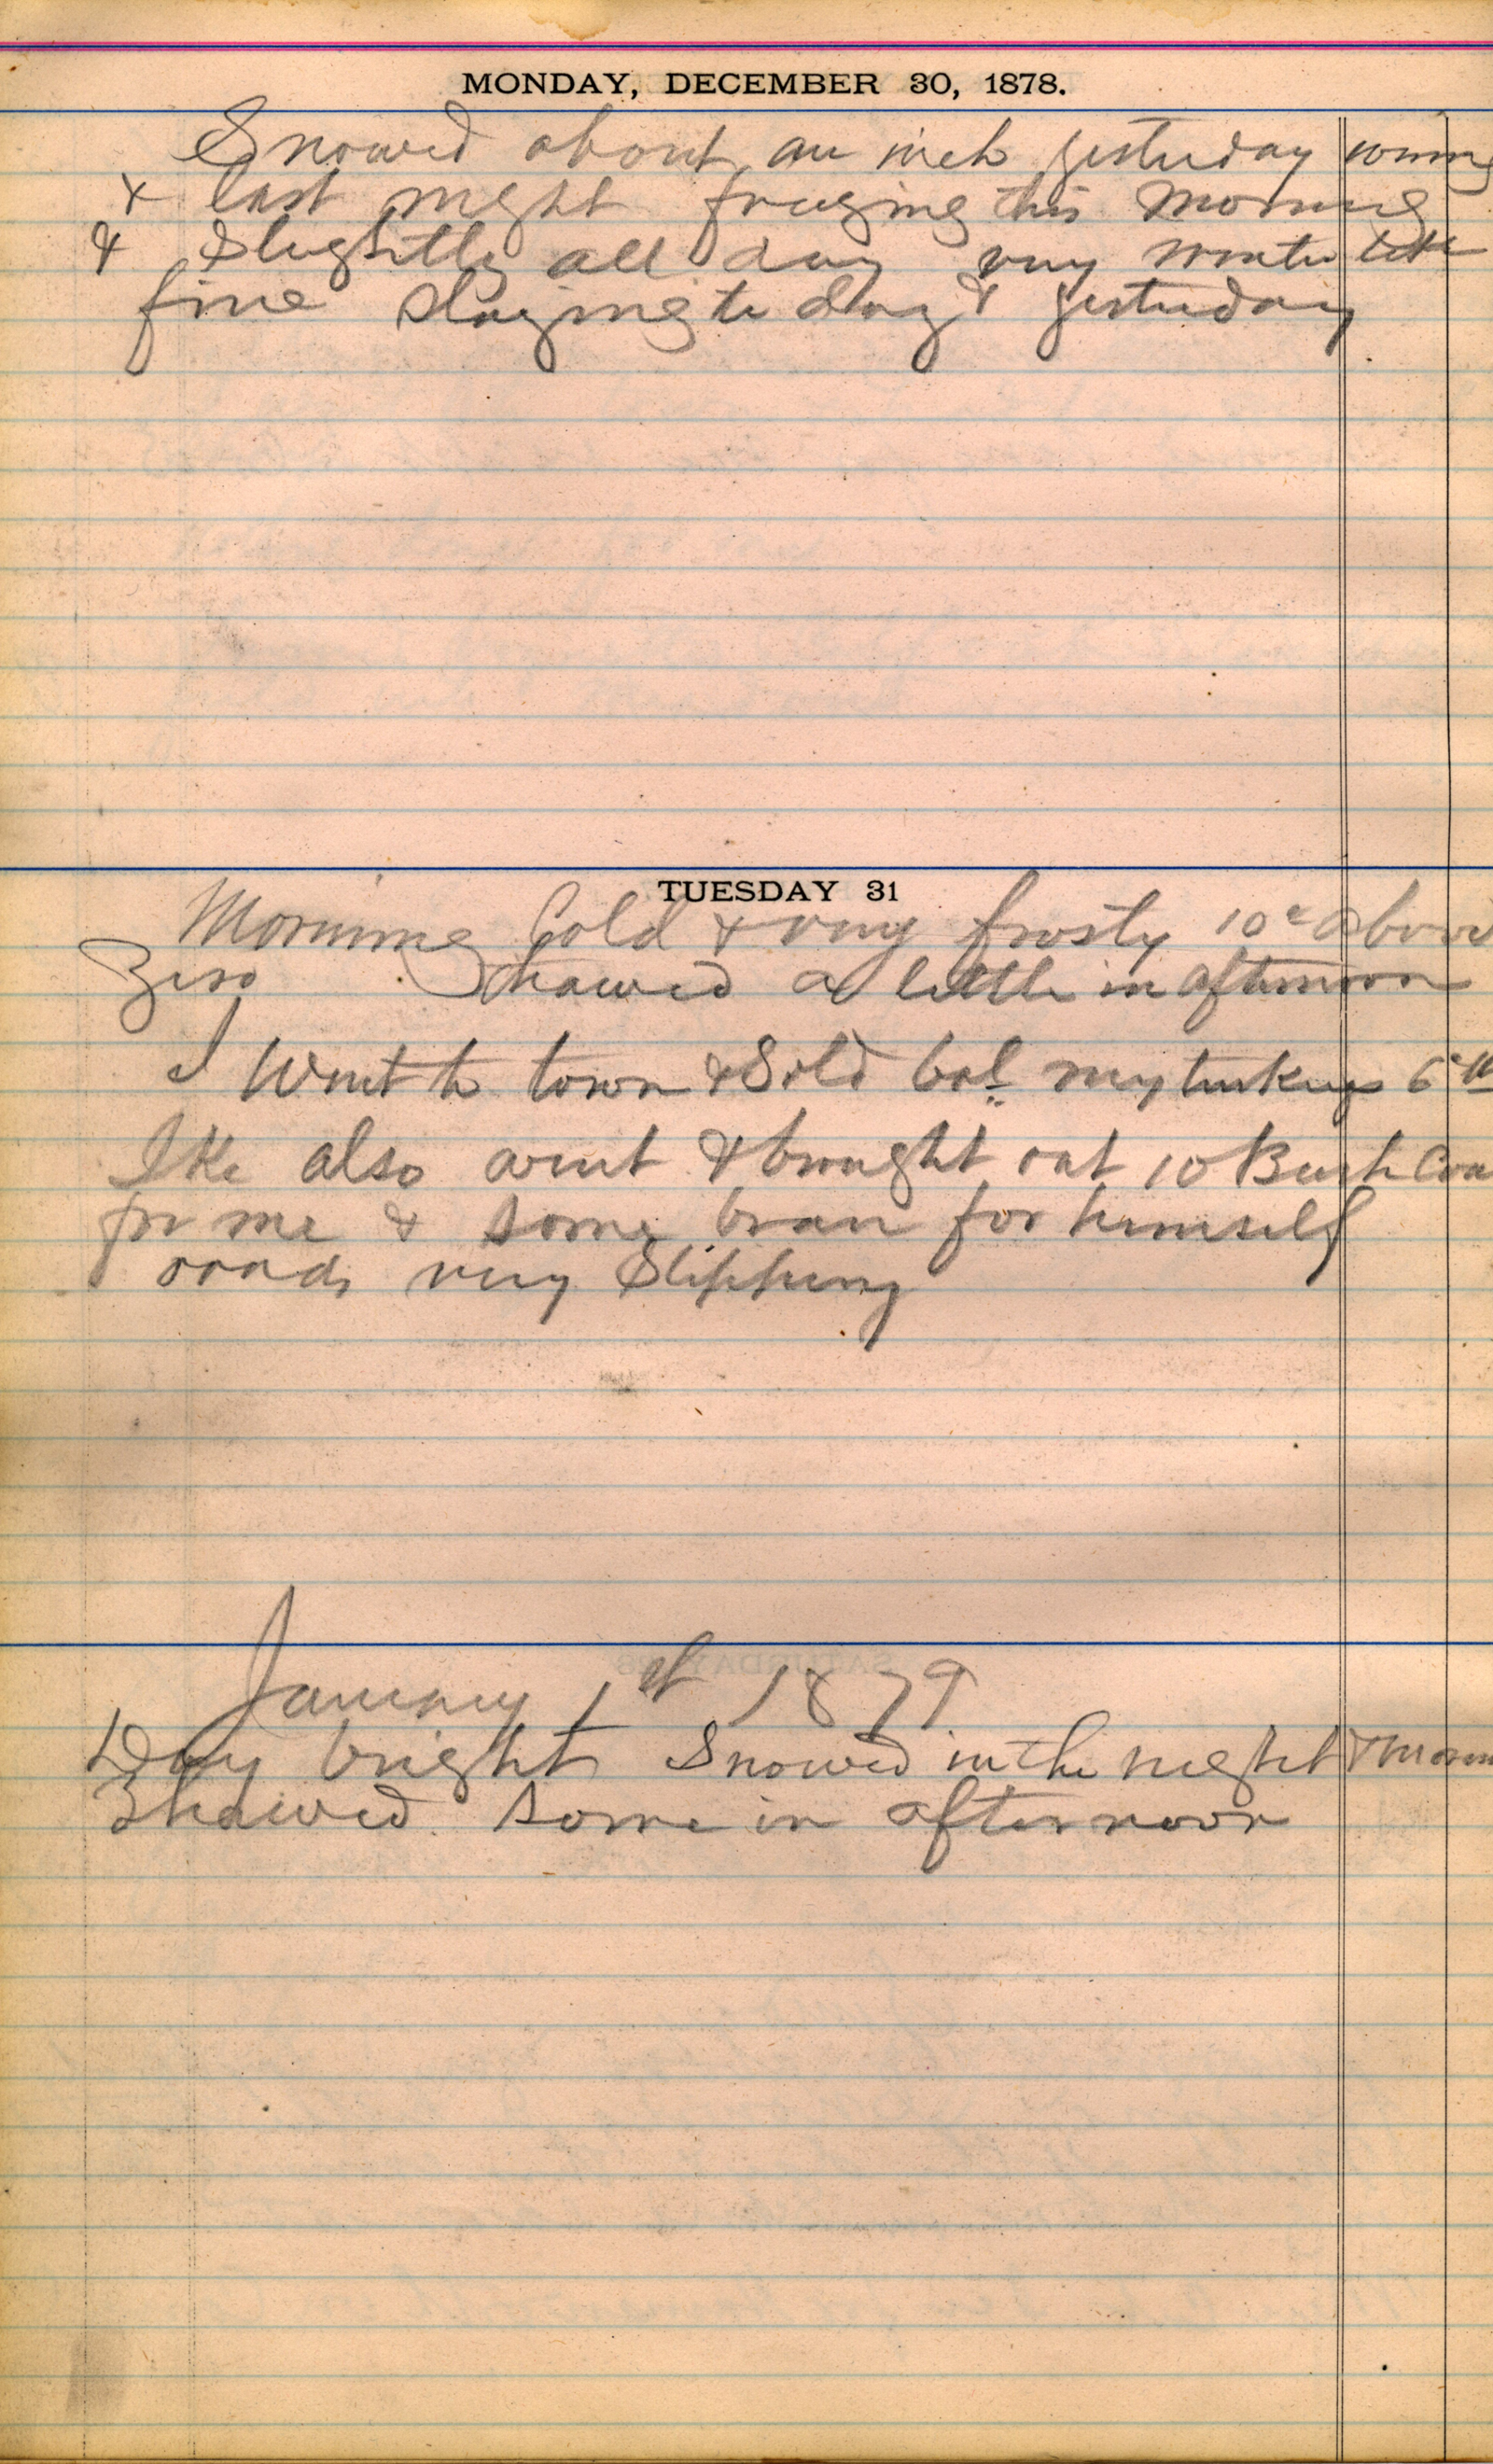 MONDAY, DECEMBER 30, 1878.
Snowed about an inch yesterday
& last night freezing this Morning
& Slightly all day very winter like
fine Slaying to day & yesterday
TUESDAY 31
Morning Cold & very frosty 10° above
Zero Thawed a little in afternoon
I Went to town & Sold bal. my turkeys
Ike also went & brought out 10 Bush
for me & some bran for himself
roads very Slippery
January 1st 1879
Day bright Snowed in the night &
Thawed some in afternoon